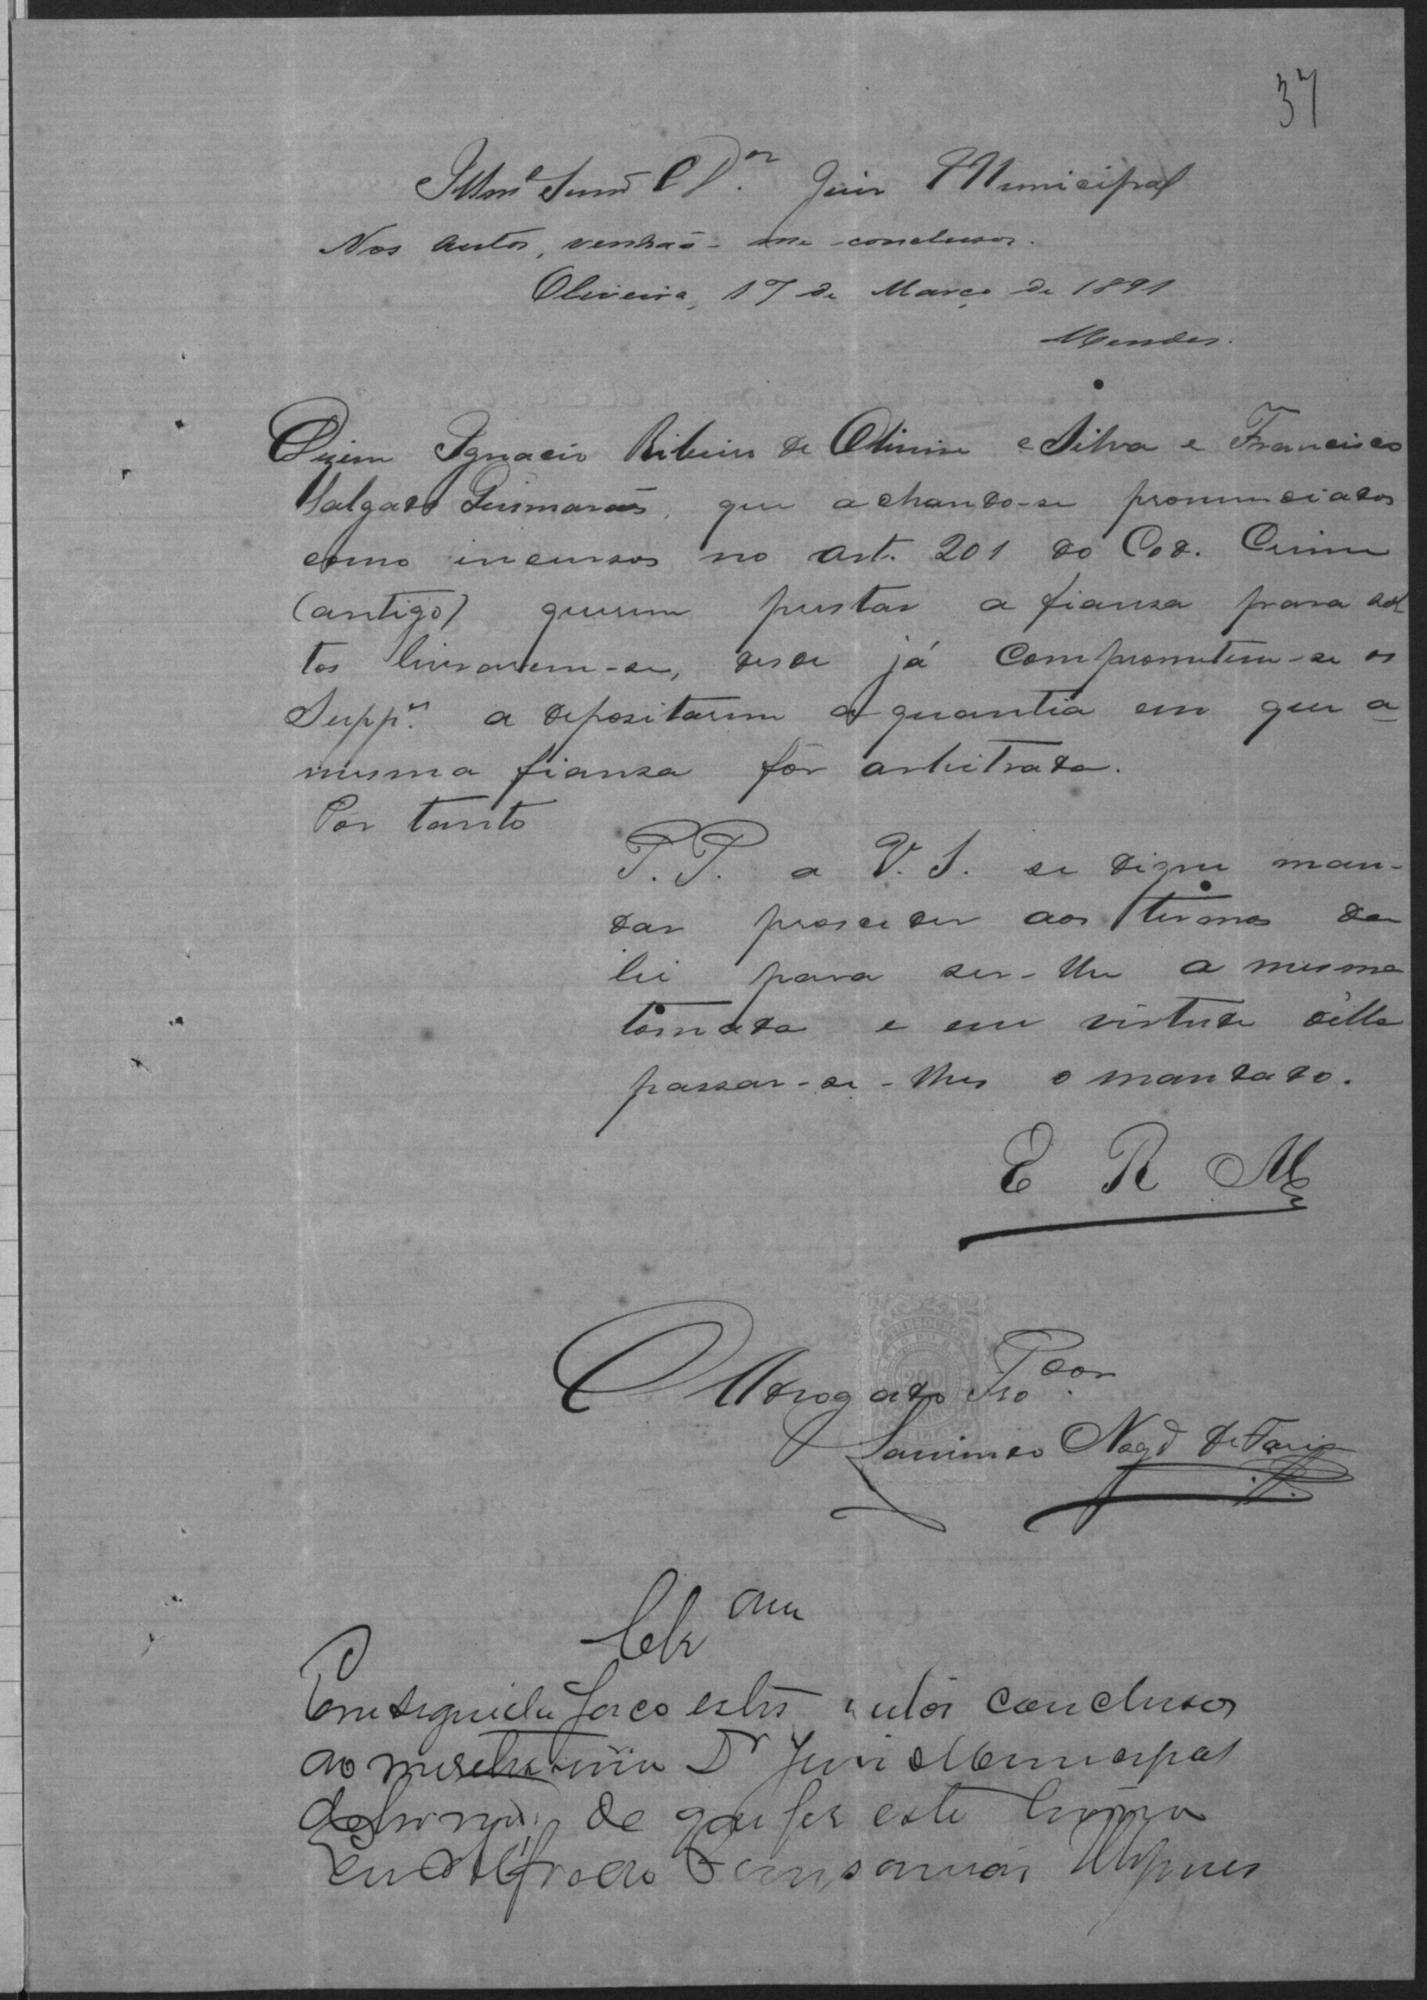 37
Illmo Snr Dor Juiz Municipal
Nos autos, venhão-me conclusos.
Oliveira, 17 de Março de 1891
Mendes.
Dizem Ignacio Ribeiro de Oliveira e Silva e Francisco
Salgado Guimarães, que achando-se pronunciados
como incursos no art. 201 do Cod. Crime
(antigo) querem prestar a fiança para sol
tos livrarem-se, desde já comprometem-se os
Suppes a depositarem a quantia em que a
mesma fiança fôr arbitrada.
Por tanto
P.P. a V.S. se digne man-
dar proceder aos termos da
lei para ser-lhe a mesma
tomada e em virtude d'ella
passar-se-lhes o mandado.
E R M
O Advogado Prodor
200
de Faria
Clzam
Em seguida faço estes autos conclusos
ao Dr Juiz Municipal
de que fiz este termo
Eu Alfredo